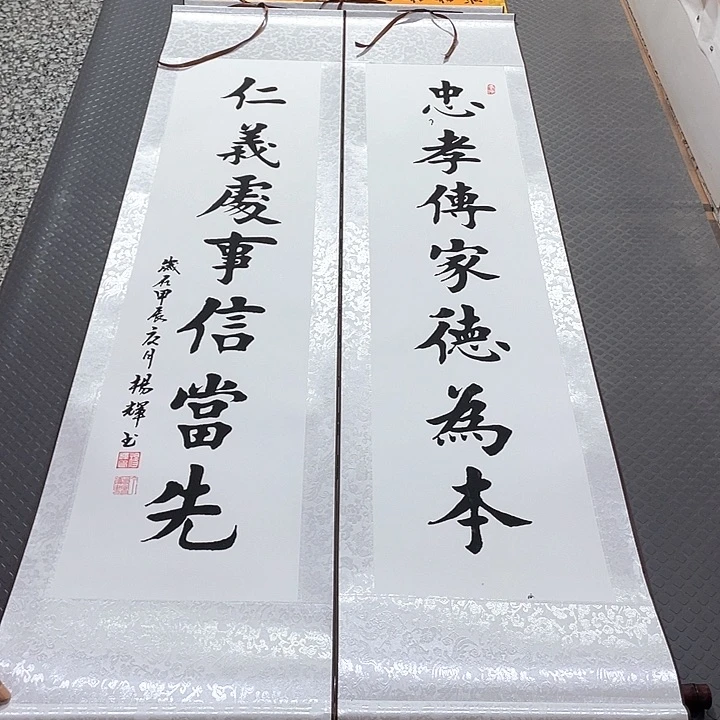 忠孝傳家德為本
仁義處事信當先
歲在甲辰 月楊輝書